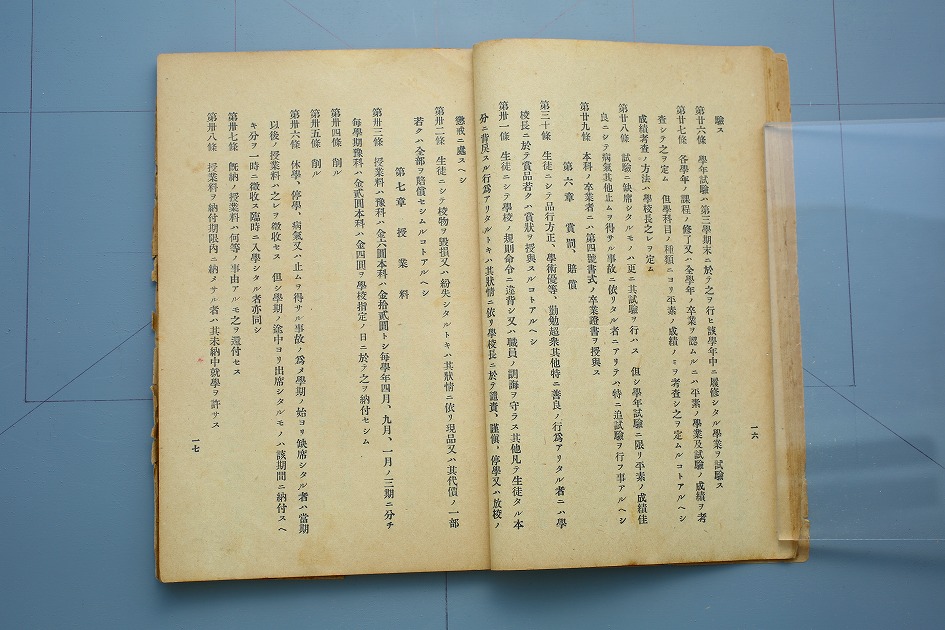 驗ス
第廿六條　學年試驗ハ第三學期末ニ於テ之ヲ行ヒ該學年中ニ履修シタル學業ヲ試驗ス
第廿七條　各學年ノ課程ノ修了又ハ全學年ノ卒業ヲ認ムルニハ平素ノ學業及試驗ノ成績ヲ考
査シテ之ヲ定ム　但學科目ノ種類ニヨリ平素ノ成績ノミヲ考査シ之ヲ定ムルコトアルヘシ
成績考査ノ方法ハ學校長之レヲ定ム
第廿八條　試驗ニ缺席シタルモノハ更ニ其試驗ヲ行ハス　但シ學年試驗ニ限リ平素ノ成績佳
良ニシテ病氣其他止ムヲ得サル事故ニ依リタル者ニアリテハ特ニ追試驗ヲ行フ事アルヘシ
第廿九條　本科ノ卒業者ニハ第四號書式ノ卒業證書ヲ授與ス
第六章　賞罰賠償
第三十條　生徒ニシテ品行方正、學術優等、勤勉超衆其他特ニ善良ノ行爲アリタル者ニハ學
校長ニ於テ賞品若クハ賞狀ヲ授與スルコトアルヘシ
第卅一條　生徒ニシテ學校ノ規則命令ニ違背シ又ハ職員ノ訓誨ヲ守ラス其他凡テ生徒タル本
分ニ背戻スル行爲アリタルトキハ其狀情ニ依リ學校長ニ於テ譴責、謹愼、停學又ハ放校ノ
一六
懲戒ニ處スヘシ
第卅二條　生徒ニシテ校物ヲ毀損又ハ紛失シタルトキハ其狀情ニ依リ現品又ハ其代償ノ一部
若クハ全部ヲ賠償セシムルコトアルヘシ
第七章　授業料
第卅三條　授業料ハ豫科ハ金六圓本科ハ金拾貳圓トシ每學年四月、九月、一月ノ三期ニ分チ
每學期豫科ハ金貳圓本科ハ金四圓ヲ學校指定ノ日ニ於テ之ヲ納付セシム
第卅四條　削ル
第卅五條　削ル
第卅六條　休學、停學、病氣又ハ止ムヲ得サル事故ノ爲メ學期ノ始ヨリ缺席シタル者ハ當期
以後ノ授業料ハ之レヲ徵收セス　但シ學期ノ途中ヨリ出席シタルモノハ該期間ニ納付スヘ
キ分ヲ一時ニ徵收ス臨時ニ入學シタル者亦同シ
第卅七條　旣納ノ授業料ハ何等ノ事由アルモ之ヲ還付セス
第卅八條　授業料ヲ納付期限內ニ納メサル者ハ其未納中就學ヲ許サス
一七